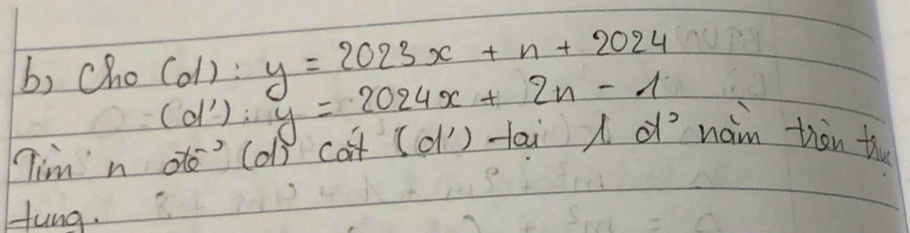 b) Cho (d): y = 2023x + n + 2024
(d'): y = 2024x + 2n - 1
Tìm n để (d) cắt (d') tại 1 đ' nằm trên trục
tung.